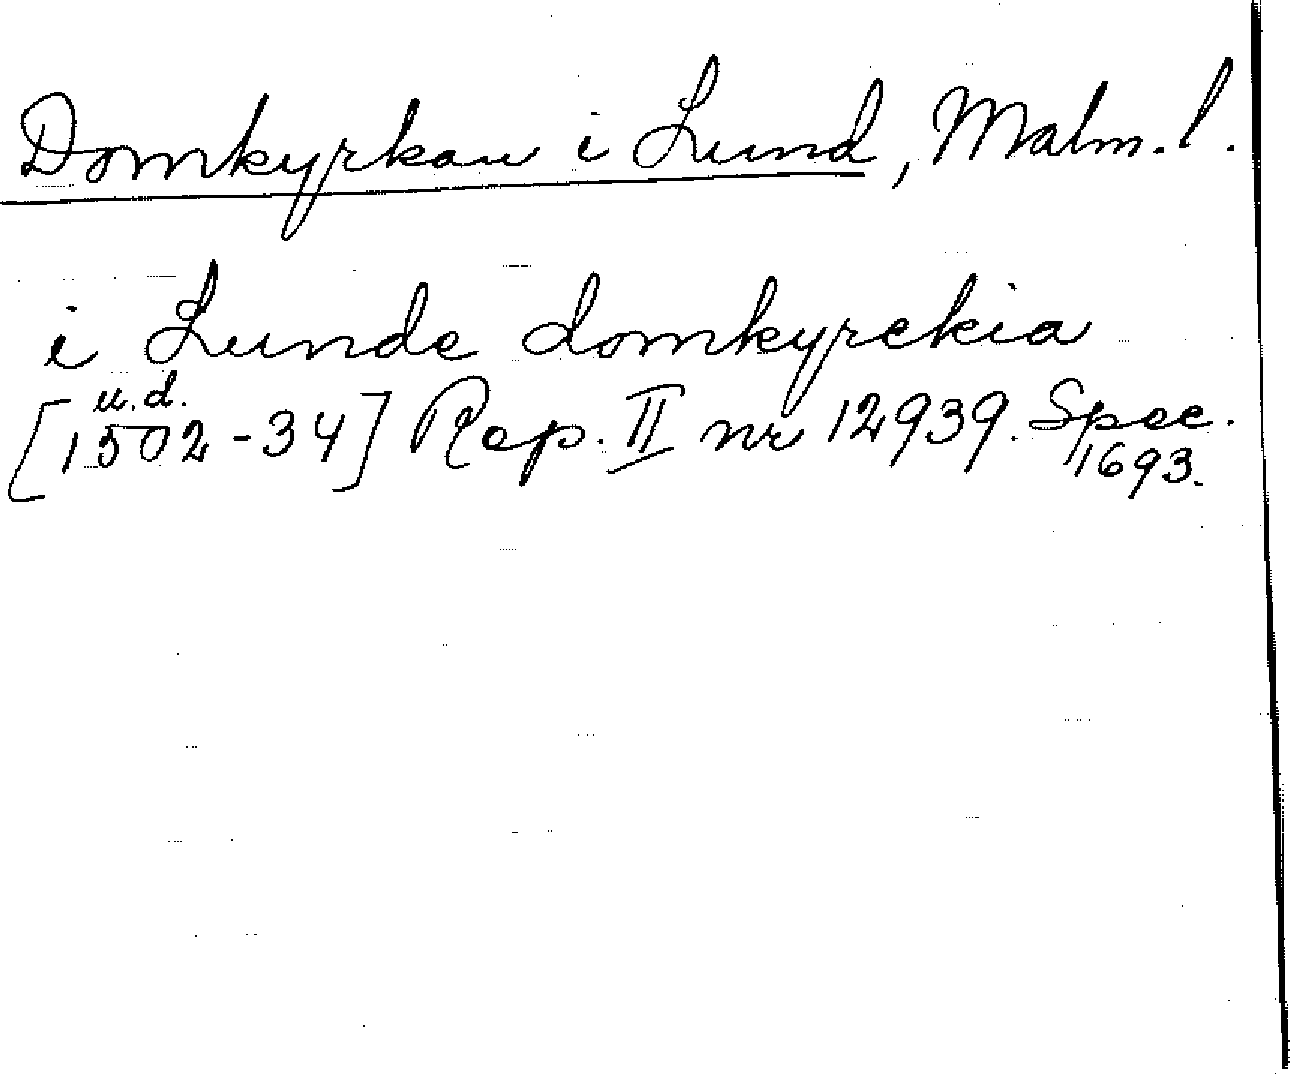 Domkyrkan i Lund, Malm. l.
i Lunde domkyrekia
u.d.
[1502-34] Rep. II nr 12939. Spec.
1693.